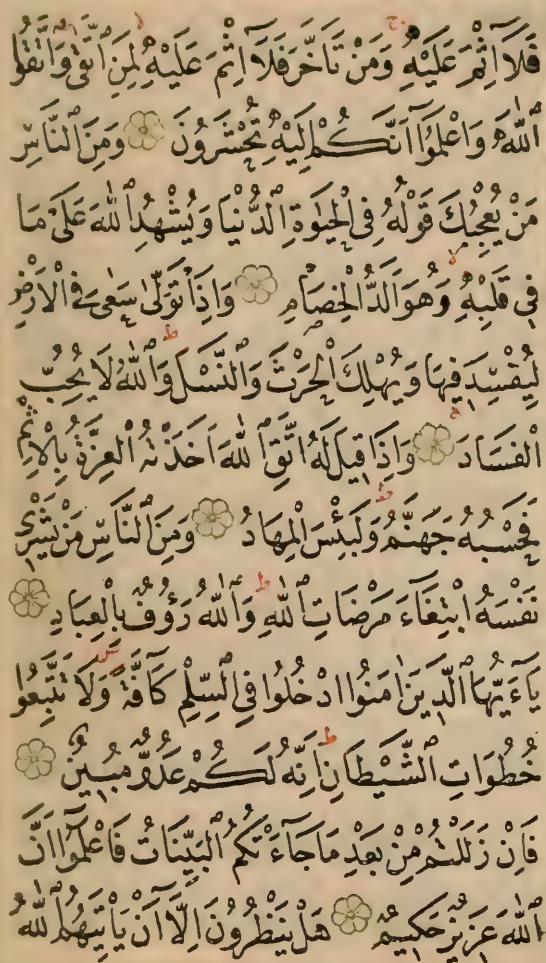 فَلَآ اِثْمَ عَلَيْهِ وَمَنْ تَاَخَّرَ فَلَآ اِثْمَ عَلَيْهِ لِمَنِ اتَّقٰى وَاتَّقُوا
اللّٰهَ وَاعْلَمُوٓا اَنَّكُمْ اِلَيْهِ تُحْشَرُونَ وَمِنَ النَّاسِ
مَنْ يُعْجِبُكَ قَوْلُهُ فِي الْحَيٰوةِ الدُّنْيَا وَيُشْهِدُ اللّٰهَ عَلٰى مَا
فِي قَلْبِهِ وَهُوَ اَلَدُّ الْخِصَامِ وَاِذَا تَوَلّٰى سَعٰى فِي الْاَرْضِ
لِيُفْسِدَ فِيهَا وَيُهْلِكَ الْحَرْثَ وَالنَّسْلَ وَاللّٰهُ لَا يُحِبُّ
الْفَسَادَ وَاِذَا قِيلَ لَهُ اتَّقِ اللّٰهَ اَخَذَتْهُ الْعِزَّةُ بِالْاِثْمِ
فَحَسْبُهُ جَهَنَّمُ وَلَبِئْسَ الْمِهَادُ وَمِنَ النَّاسِ مَنْ يَشْرِي
نَفْسَهُ ابْتِغَآءَ مَرْضَاتِ اللّٰهِ وَاللّٰهُ رَؤُفٌ بِالْعِبَادِ
يَآءَيُّهَا الَّذِينَ اٰمَنُوا ادْخُلُوا فِي السِّلْمِ كَآفَّةً وَلَا تَتَّبِعُوا
خُطُوَاتِ الشَّيْطَانِ اِنَّهُ لَكُمْ عَدُوٌّ مُبِينٌ
فَاِنْ زَلَلْتُمْ مِنْ بَعْدِ مَا جَآءَتْكُمُ الْبَيِّنَاتُ فَاعْلَمُوٓا اَنَّ
اللّٰهَ عَزِيزٌ حَكِيمٌ هَلْ يَنْظُرُونَ اِلَّآ اَنْ يَاْتِيَهُمُ اللّٰهُ